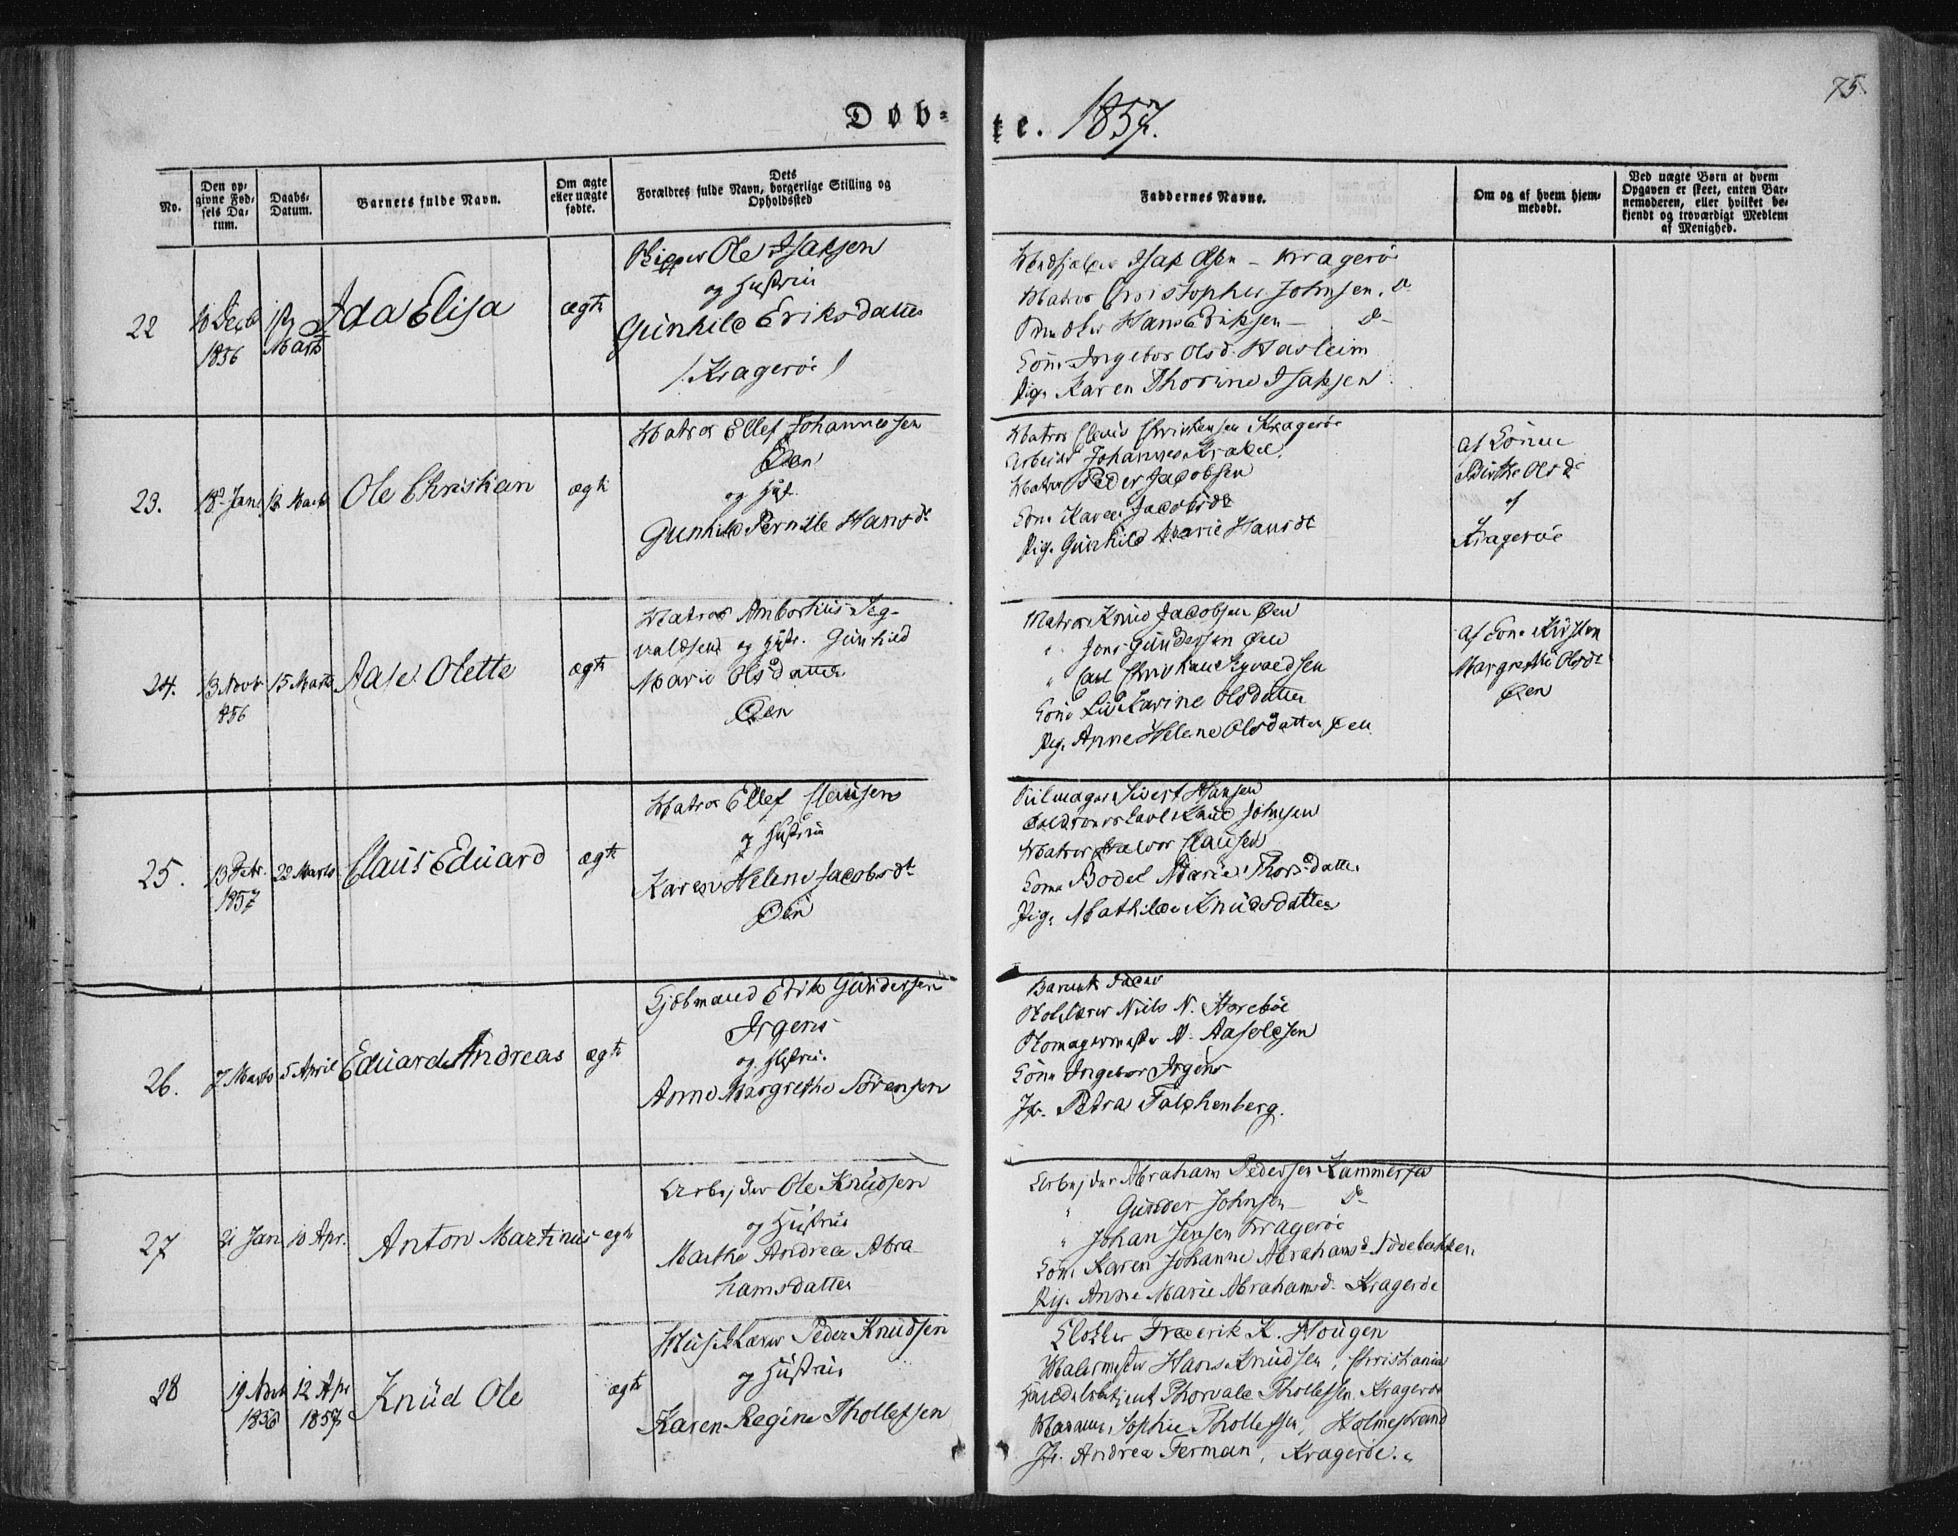 75.
Døb-
te. 1857.
No.
Den op-
givne Fød-
sels Da-
tum.
Daabs-
Datum.
Barnets fulde Navn.
Om ægte
eller uægte
fødte.
Dets
Forældres fulde Navn, borgerlige Stilling og
Opholdssted
Faddernes Navne.
Om og af hvem hjem-
medøbt.
Ved uægte Børn at hvem
Opgaven er skeet, enten Bar-
nemoderen, eller hvilket be-
kjendt og troværdigt Medlem
af Menighed.
22
10 Decb
1856
Marts
Ida Elisa
ægte
Ole Isaksen
og Hustru
Gunhild Eriksdatter
/Kragerøe/
Isak Olsen - Kragerøe
Matros Christopher Johnsen. do
Hans Eriksen - do
Kone Ingebor Olsd. Hasleim
Pige Karen Thorine Isaksen.
23.
18de Jan.
Marts
Ole Christian
ægte
Matros Ellef Johannessen
Øen
og Hust.
Gunhild Pernille Hansdr
Matros Claus Christensen Kragerøe
Arbeider Johannes
Matros Peder Jacobsen
Kone Karen Jacobsdr
Pige Gunhild Marie Hansdt
af Konen
Birthe Olsdr
af
Kragerøe
24.
13 Novb
1856
15 Marts
Aase Olette
ægte
Matros Ambortius Seg-
valdsen og Hustr. Gunhild
Marie Olsdatter
Øen
Matros Knud Jacobsen Øen
" Jens Gundersen Øen
" Carl Christian Sigvaldsen
Kone Liv Karine Olsdatter
Pige Anne Helene Olsdatter Øen
af Kone Kirsten
Margrethe Olsdt
Øen
25.
13 Febr.
1857
22 Marts
Claus Eduard
ægte
Matros Ellef Clausen
og Hustru
Karen Helene Jacobsdt
Øen
Piilmager Sivert Hansen
Knud Johnsen
Matros Halvor Clausen
Kone Bodel Marie Thorsdatter
Pige Mathilde Knudsdatter
26.
7 Marts
5 April
Eduard Andreas
ægte
Kjøbmand Erik Gundersen
Irgens
og Hustru
Anne Margrethe Sørensen
Barnets Fader
Niels N. Homebøe
N. Aasolesen
Kone Ingebor Irgens
Jfr. Petra Falchenberg.
27
21 Jan
10 Apr.
Anton Martinus
ægte
Arbejder Ole Knudsen
og Hustru
Marthe Andrea Abra-
hamsdatter
Arbejder Abraham Pedersen Kammerfos
" Gunder Johnsen do
" Johan Jensen Kragerøe
Kone Karen Johanne Abrahamsd
Pige Anne Marie Abrahamsd. Kragerøe
28
19
12 Apr
1857
Knud Ole
ægte
Musiklærer Peder Knudsen
og Hustru
Karen Regine Thollefsen
Klokker Frederik K. Hougen
Malermester Hans Knudsen, Christiania
Handelsbetjent Thorvald Thollefsen, Kragerøe
Madame Sophie Thollefsen, Holmestrand
Jfr. Andrea Ferman, Kragerøe.